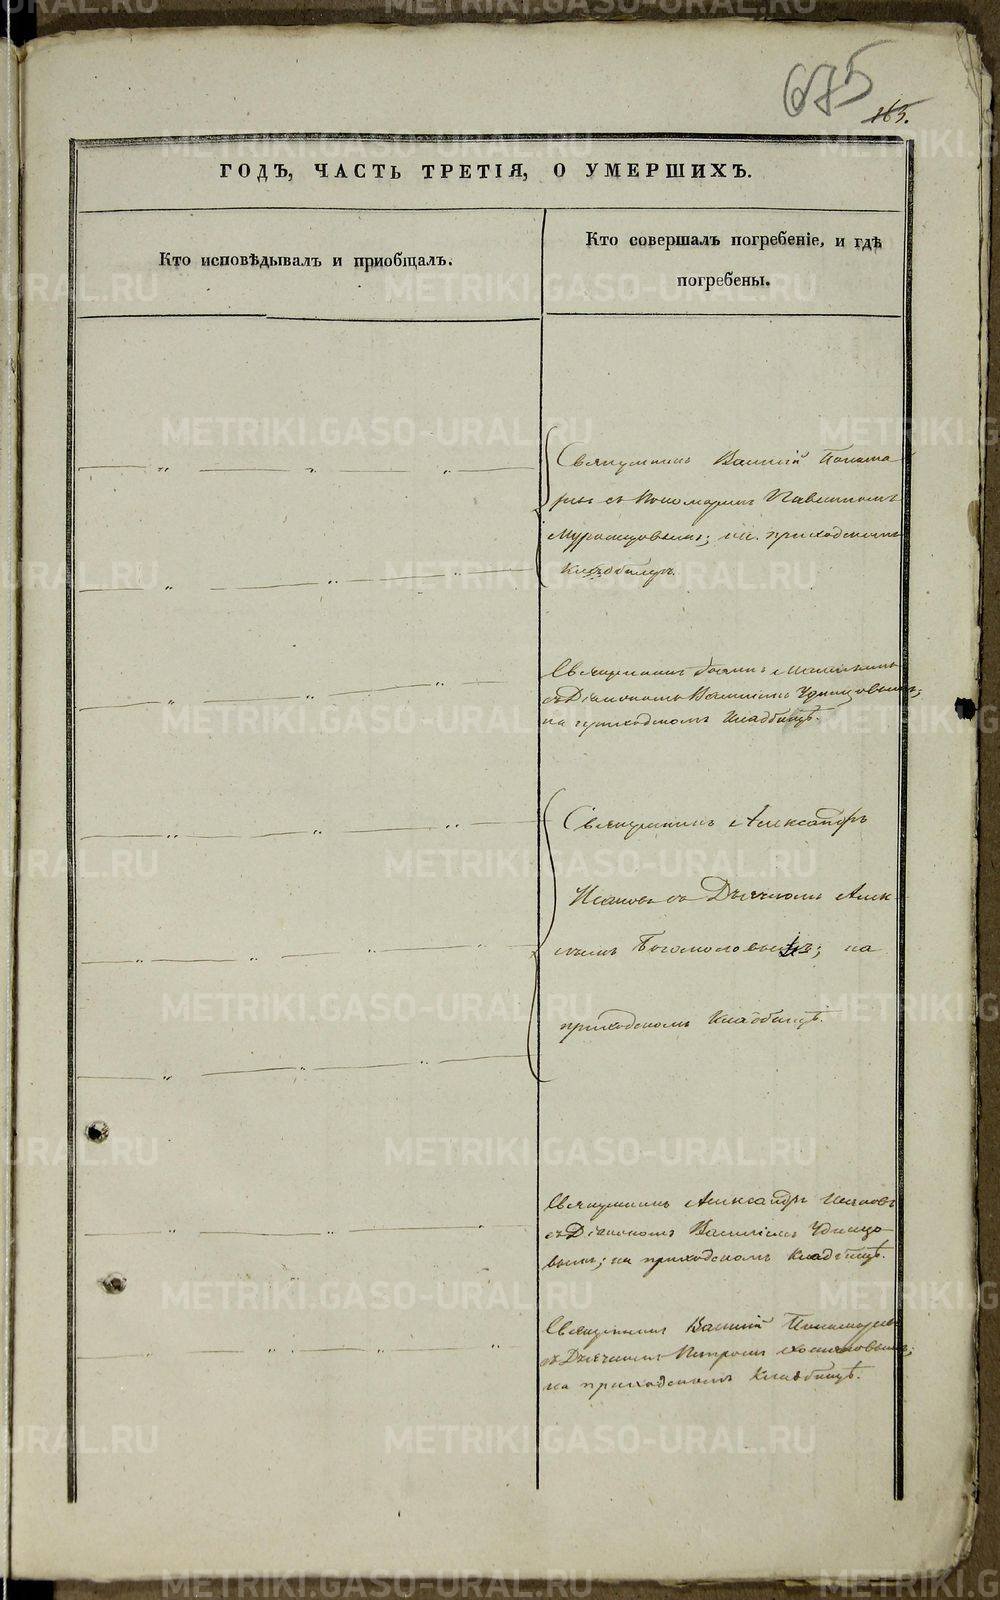 675
165.
ГОДЪ, ЧАСТЬ ТРЕТІЯ, О УМЕРШИХЪ.
Кто исповѣдывалъ и пріобщалъ.
Кто совершалъ погребеніе, и гдѣ
погребены.
Священникъ Василій Понома
ревъ съ Пономаремъ
на приходскомъ
Кладбищѣ.
Священникъ
съ Діакономъ Василіемъ Удинцовымъ;
на приходскомъ Кладбищѣ.
Священникъ Александръ
съ Дьячкомъ Алек
сѣемъ Богомоловымъ; на
приходскомъ Кладбищѣ.
Священникъ Александръ
съ Діакономъ Василіемъ Удинцо
вымъ; на приходскомъ Кладбищѣ.
Священникъ Василій Пономаревъ
съ Дьячкомъ Петромъ
на приходскомъ Кладбищѣ.
METRIKI.GASO-URAL.RU